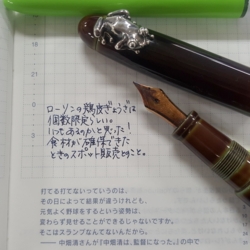 ローソンの鶏皮ぎょうざは
個数限定らしい。
いつもあるのかと思った!
食材が確保できた
ときのスポット販売とのこと。
打てる打てないっていうのは、
その日によって結果が違うけれども、
元気よく野球をするという姿勢は、
変わらず見せることができるじゃないですか。
そこはスランプなんてないんだから。
──中畑清さんが『中畑清は、監督になった』の中で